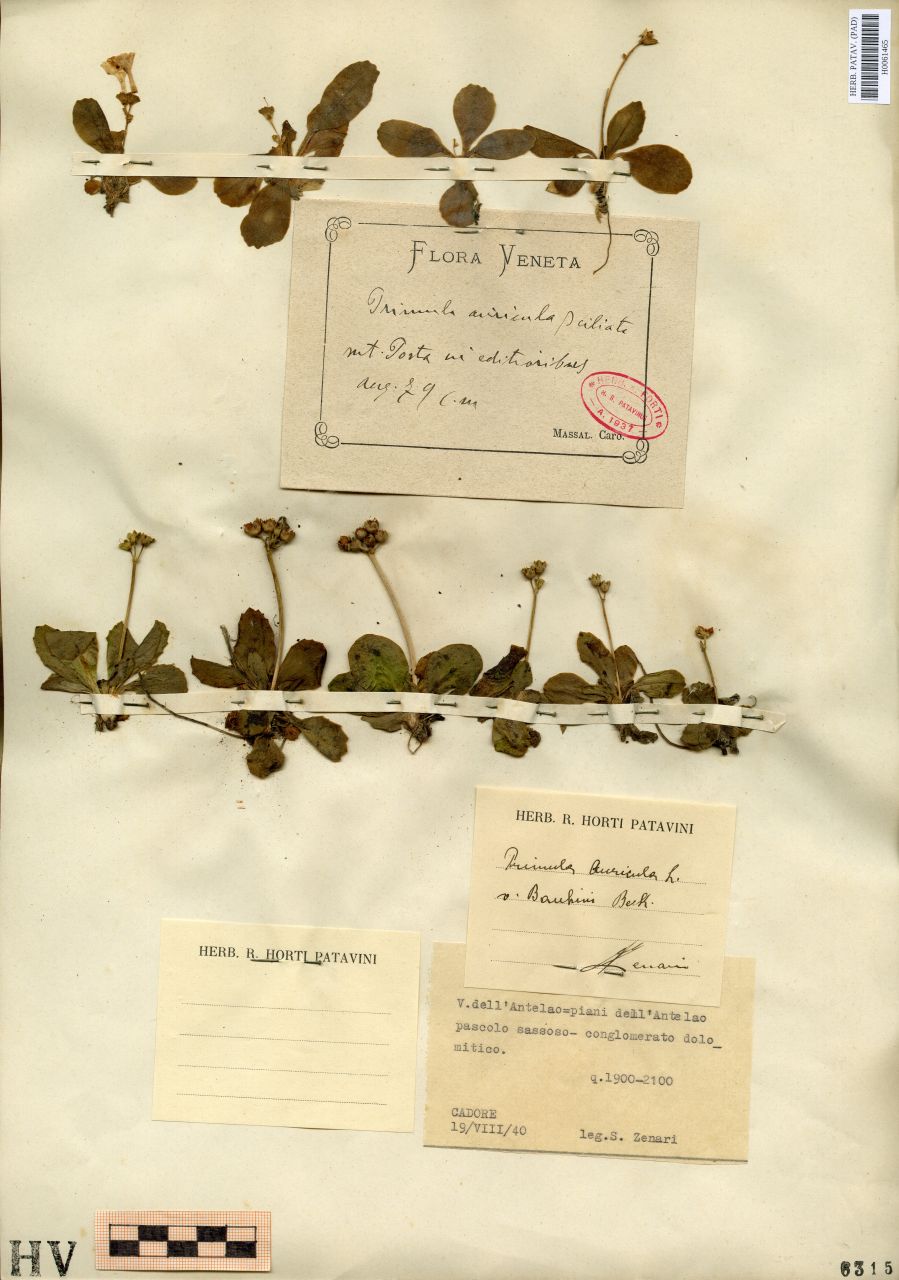 HERB. PATAV. (PAD)
H0061465
FLORA VENETA
Primula auricula β ciliata
mt. Posta in editioribus
aug. 79 C. M
MASSAL. Caro.
HERB. R. HORTI
H. B. PATAVINI
A. 1937
HERB. R. HORTI PATAVINI
Primula Auricula L.
v. Bauhini Beck.
Zenari
HERB. R. HORTI PATAVINI
V.dell'Antelao=piani dell'Antelao
pascolo sassoso- conglomerato dolo_
mitico.
q.1900-2100
CADORE
19/VIII/40
leg.S. Zenari
HV
6315